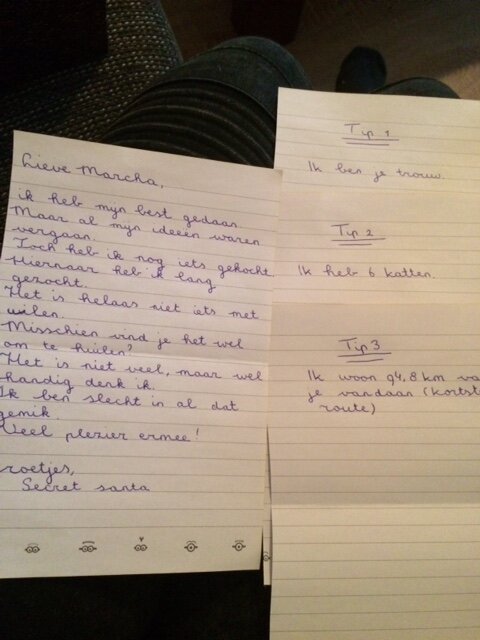 Lieve Marcha,
ik heb mijn best gedaan.
Maar al mijn ideeën waren
vergaan.
Toch heb ik nog iets gekocht.
Hiernaar heb ik lang
gezocht.
Het is helaas niet iets met
uilen.
Misschien vind je het wel
om te huilen?
Het is niet veel, maar wel
handig denk ik.
Ik ben slecht in al dat
gemik.
Veel plezier ermee!
roetjes,
Secret santa
Tip 1
Ik ben je trouw.
Tip 2
Ik heb 6 katten.
Tip 3
Ik woon 94,8 km va
je vandaan (kortst
route)